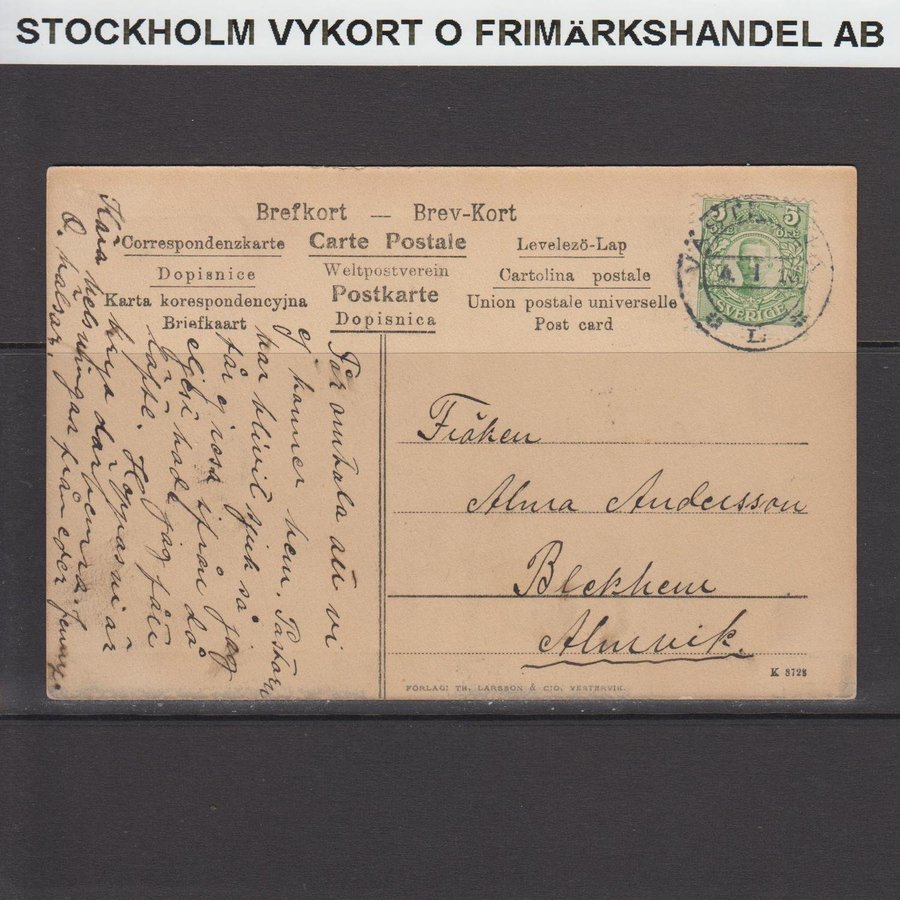 STOCKHOLM VYKORT O FRIMÄRKSHANDEL AB
Brefkort — Brev-Kort
Correspondenzkarte Carte Postale Levelezö-Lap
Dopisnice Weltpostverein Cartolina postale
Karta korespondencyjna Postkarte Union postale universelle
Briefkaart Dopisnica Post card
5 5
ÖRE
SVERIGE
L
Får omtala att vi
ej kommer hem. Pastorn
har blivit sjuk så
får ej resa ifrån då
eljes hade jag fått
lofte. Hoppas ni är
bryga därhemma.
Kära helsningar från eder Jenny.
O, hälsar.
Fröken
Alma Andersson
Blekhem
Almvik.
K 8728
FÖRLAG: TH. LARSSON & CIO, VESTERVIK.